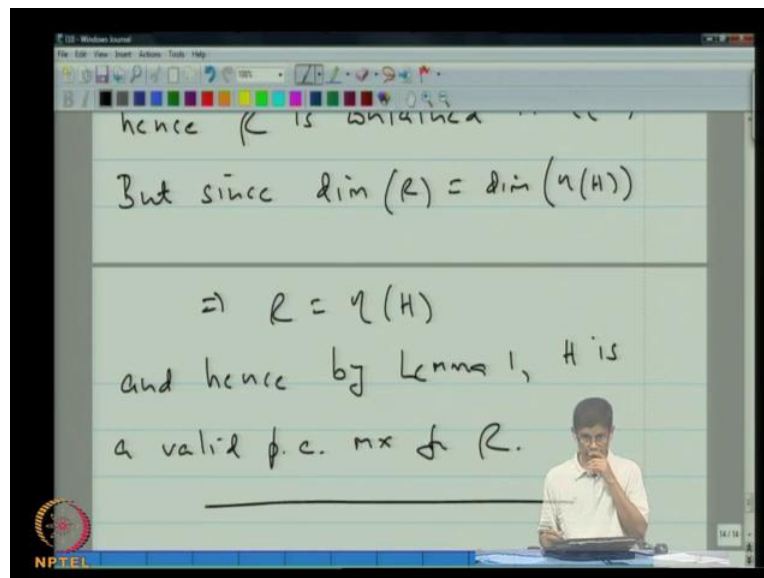 138 - Windows Journal
File Edit View Insert Actions Tools Help
hence R is contained in
But since dim (R) = dim (η(H))
⇒ R = η(H)
and hence by Lemma 1, H is
a valid p.c. mx for R.
14/14
NPTEL